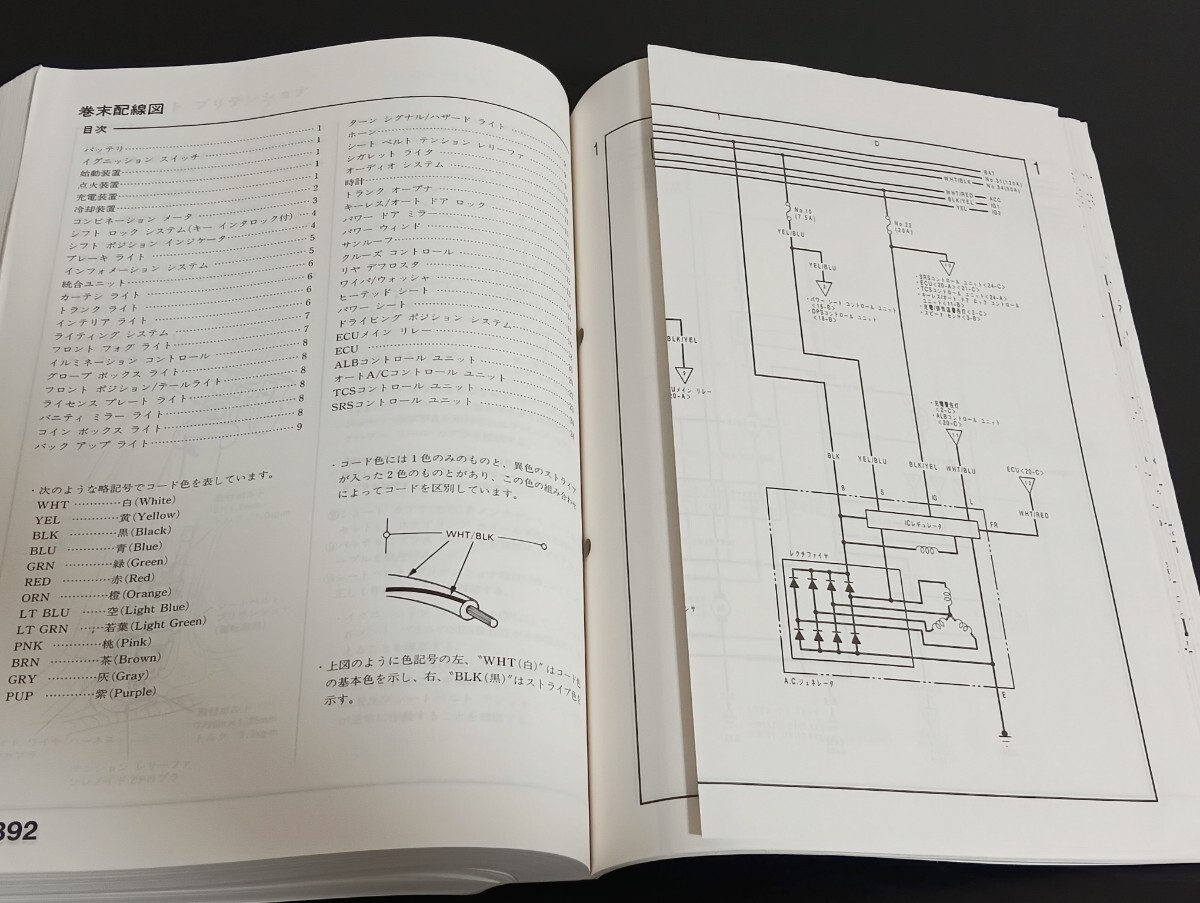 巻末配線図
目次
バッテリ 1
イグニッション スイッチ 1
始動装置 1
点火装置 1
充電装置 2
冷却装置 3
コンビネーション メータ 4
シフト ロック システム(キー インタロック付) 4
シフト ポジション インジケータ 5
ブレーキ ライト 5
インフォメーション システム 6
統合ユニット 6
カーテシ ライト 6
トランク ライト 6
インテリア ライト 7
ライティング システム 7
フロント フォグ ライト 8
イルミネーション コントロール 8
グローブ ボックス ライト 8
フロント ポジション/テールライト 8
ライセンス プレート ライト 8
バニティ ミラー ライト 8
コイン ボックス ライト 8
バック アップ ライト 9
ターン シグナル/ハザード ライト
ホーン
シート ベルト テンション レリーファ
シガレット ライタ
オーディオ システム
時計
トランク オープナ
キーレス/オート ドア ロック
パワー ドア ミラー
パワー ウィンド
サンルーフ
クルーズ コントロール
リヤ デフロスタ
ワイパ/ウォッシャ
ヒーテッド シート
パワー シート
ドライビング ポジション システム
ECUメイン リレー
ECU
ALBコントロール ユニット
オートA/Cコントロール ユニット
TCSコントロール ユニット
SRSコントロール ユニット
・次のような略記号でコード色を表しています。
WHT …………白(White)
YEL …………黄(Yellow)
BLK …………黒(Black)
BLU …………青(Blue)
GRN …………緑(Green)
RED …………赤(Red)
ORN …………橙(Orange)
LT BLU ……空(Light Blue)
LT GRN ……若葉(Light Green)
PNK …………桃(Pink)
BRN …………茶(Brown)
GRY …………灰(Gray)
PUP …………紫(Purple)
・コード色には1色のみのものと、異色のストライプ
が入った2色のものとがあり、この色の組み合わせ
によってコードを区別しています。
WHT/BLK
・上図のように色記号の左、"WHT(白)"はコード色
の基本色を示し、右、"BLK(黒)"はストライプ色を
示す。
392
1
D
1
BAT
WHT/BLK
No.31(120A)
WHT/RED
ACC
BLK/YEL
IG1
YEL
IG2
No.10
(7.5A)
YEL/BLU
YEL/BLU
・パワー シート コントロール ユニット
<16-B>
No.22
(20A)
・SRSコントロール ユニット<24-C>
・ECU<20-A><21-C>
・TCSコントロール ユニット<24-A>
・キーレス/オート ドア ロック コントロール
ユニット<11-B>
・スピード センサ<3-B>
BLK/YEL
メイン リレー
20-A>
・充電警告灯
<2-C>
・ALBコントロール ユニット
<20-C>
ECU<20-C>
BLK
YEL/BLU
BLK/YEL
WHT/BLU
WHT/RED
B
S
IG
L
FR
ICレギュレータ
レクチファイヤ
A.C.ジェネレータ
E